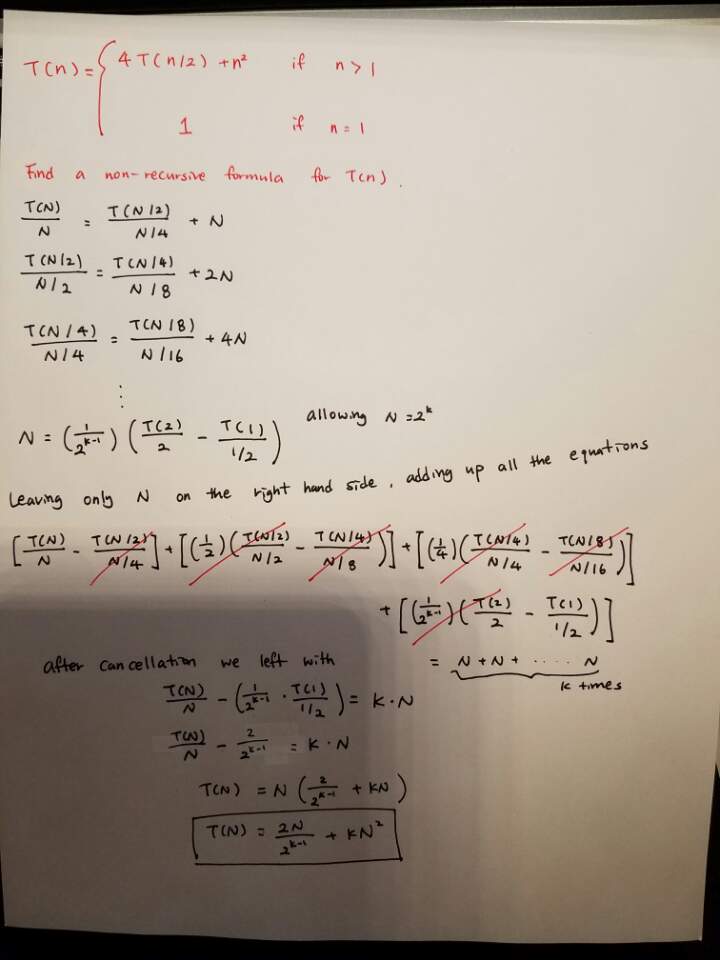 T(n) = { 4T(n/2) + n² if n > 1
1 if n = 1
Find a non-recursive formula for T(n).
T(N)/N = T(N/2)/(N/4) + N
T(N/2)/(N/2) = T(N/4)/(N/8) + 2N
T(N/4)/(N/4) = T(N/8)/(N/16) + 4N
⋮
N = (1/2^(k-1)) (T(2)/2 - T(1)/(1/2)) allowing N = 2^k
Leaving only N on the right hand side, adding up all the equations
[T(N)/N - T(N/2)/(N/4)] + [(1/2)(T(N/2)/(N/2) - T(N/4)/(N/8))] + [(1/4)(T(N/4)/(N/4) - T(N/8)/(N/16))]
+ [(1/2^(k-1))(T(2)/2 - T(1)/(1/2))]
= N + N + ..... N
k times
After cancellation we left with
T(N)/N - (1/2^(k-1) · T(1)/(1/2)) = K · N
T(N)/N - 2/2^(k-1) = K · N
T(N) = N (2/2^(k-1) + KN)
T(N) = 2N/2^(k-1) + KN²